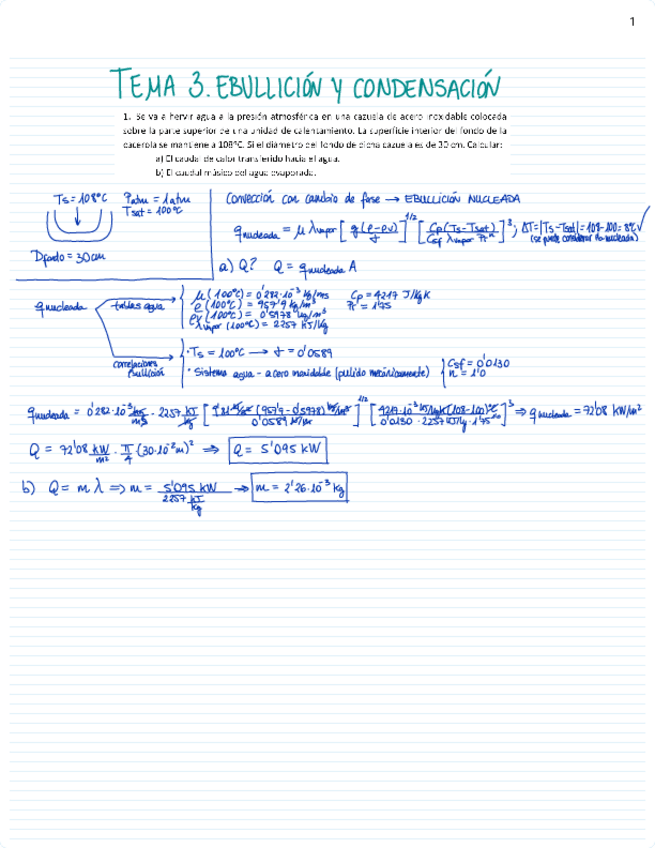 1
TEMA 3. EBULLICIÓN Y CONDENSACIÓN
1. Se va a hervir agua a la presión atmosférica en una cazuela de acero inoxidable colocada
sobre la parte superior de una unidad de calentamiento. La superficie interior del fondo de la
cacerola se mantiene a 108ºC. Si el diámetro del fondo de dicha cazuela es de 30 cm. Calcular:
a) El caudal de calor transferido hacia el agua.
b) El caudal másico del agua evaporada.
Ts = 108ºC Patm = 1 atm
Tsat = 100ºC
Dfondo = 30 cm
Convección con cambio de fase → EBULLICIÓN NUCLEADA
q nucleada = μ λvapor [ g(ρ - ρv) / σ ]^1/2 [ Cp (Ts - Tsat) / Csf λvapor Pr^n ]^3 ; ΔT = |Ts - Tsat| = 108 - 100 = 8ºC ✓
(se puede considerar nucleada)
a) Q? Q = q nucleada A
q nucleada
tablas agua
μ (100ºC) = 0'282·10^-3 kg/ms Cp = 4217 J/kg K
ρ (100ºC) = 957'9 kg/m³ Pr = 1'75
ρv (100ºC) = 0'5978 kg/m³
λvapor (100ºC) = 2257 KJ/kg
correlaciones ebullición
· Ts = 100ºC → σ = 0'0589
· Sistema agua - acero inoxidable (pulido mecánicamente) Csf = 0'0130
n = 1'0
q nucleada = 0'282·10^-3 kg/ms · 2257 KJ/kg [ 9'81 m/s² (957'9 - 0'5978) kg/m³ / 0'0589 N/m ]^1/2 [ 4217·10^-3 KJ/kgK (108-100)ºC / 0'0130 · 2257 KJ/kg · 1'75^1'0 ]^3 ⇒ q nucleada = 72'08 KW/m²
Q = 72'08 KW/m² · π/4 (30·10^-2 m)² ⇒ Q = 5'095 KW
b) Q = m λ ⇒ m = 5'095 KW / 2257 KJ/kg → m = 2'26·10^-3 Kg